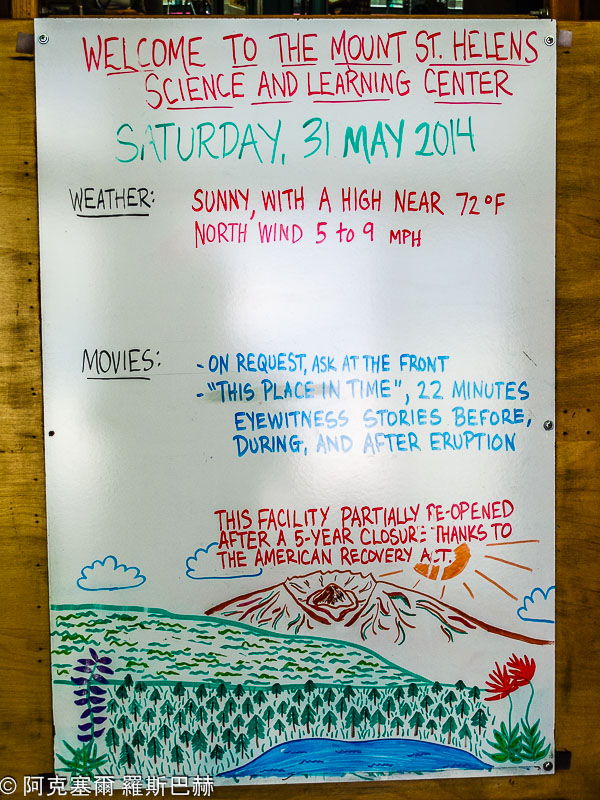 WELCOME TO THE MOUNT ST. HELENS
SCIENCE AND LEARNING CENTER
SATURDAY, 31 MAY 2014
WEATHER: SUNNY, WITH A HIGH NEAR 72°F
NORTH WIND 5 to 9 MPH
MOVIES: - ON REQUEST, ASK AT THE FRONT
- "THIS PLACE IN TIME", 22 MINUTES
EYEWITNESS STORIES BEFORE,
DURING, AND AFTER ERUPTION
THIS FACILITY PARTIALLY RE-OPENED
AFTER A 5-YEAR CLOSURE THANKS TO
THE AMERICAN RECOVERY ACT.
© 阿克塞爾 羅斯巴赫